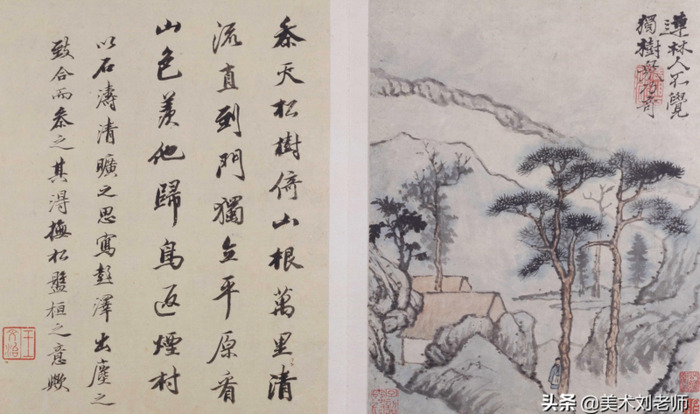 連林人不覺
獨樹眾乃奇
叅天松樹倚山根萬里清
流直到門獨立平原看
山色羨他歸鳥返煙村
以石濤清曠之思寫彭澤出塵之
致合而叅之其得撫松盤桓之意歟
王文治
头条 @美术刘老师